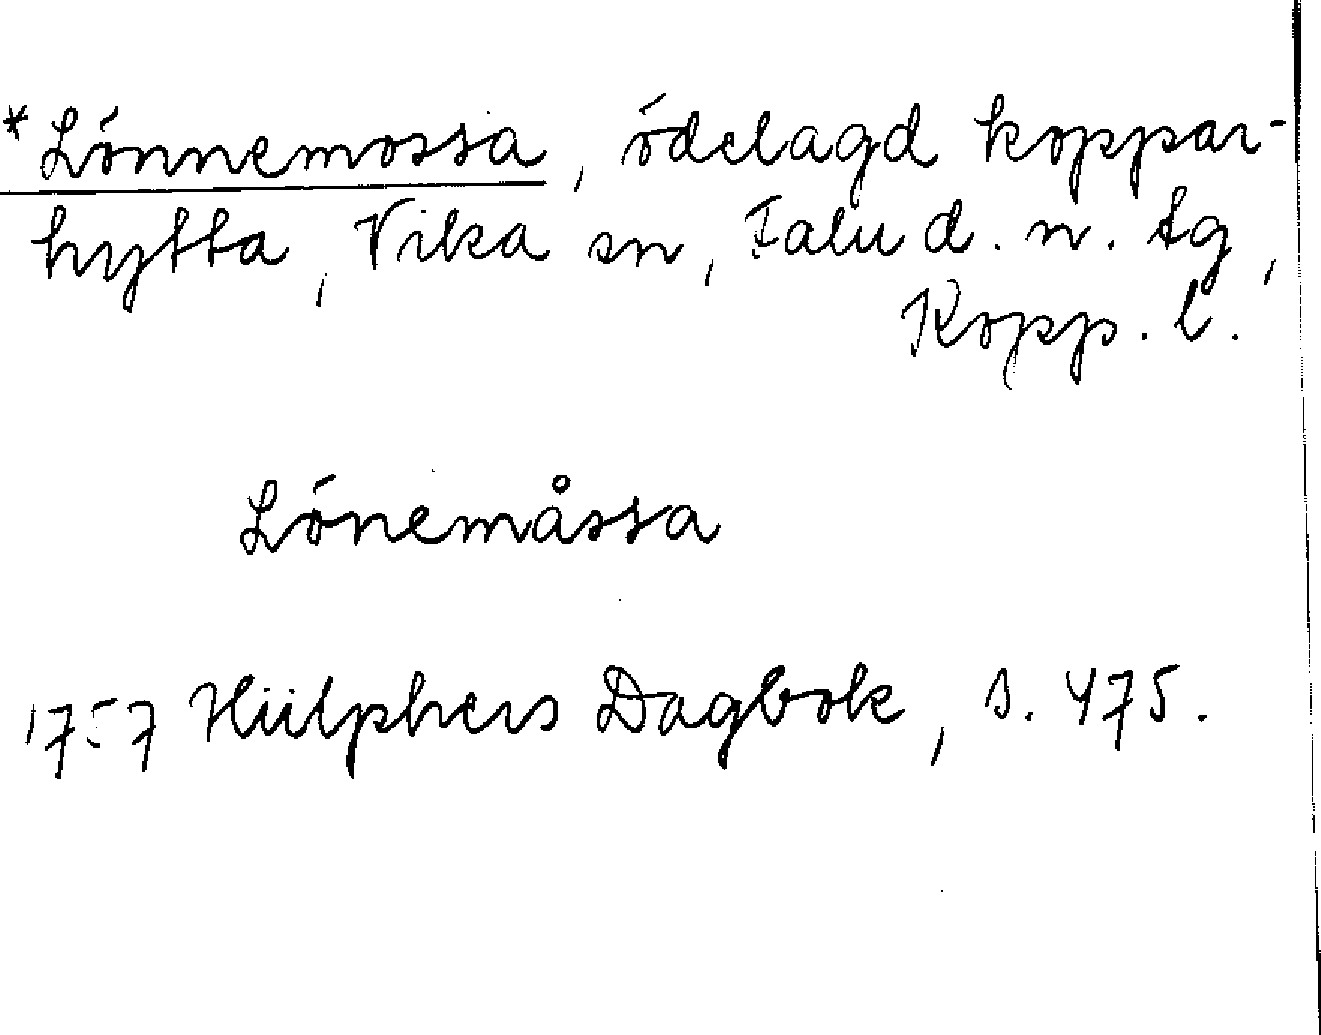 *Lönnemossa, ödelagd koppar-
hytta, Vika sn, Falu d. n. tg,
Kopp. l.
Lönemåssa
1757 Hülphers Dagbok, s. 475.